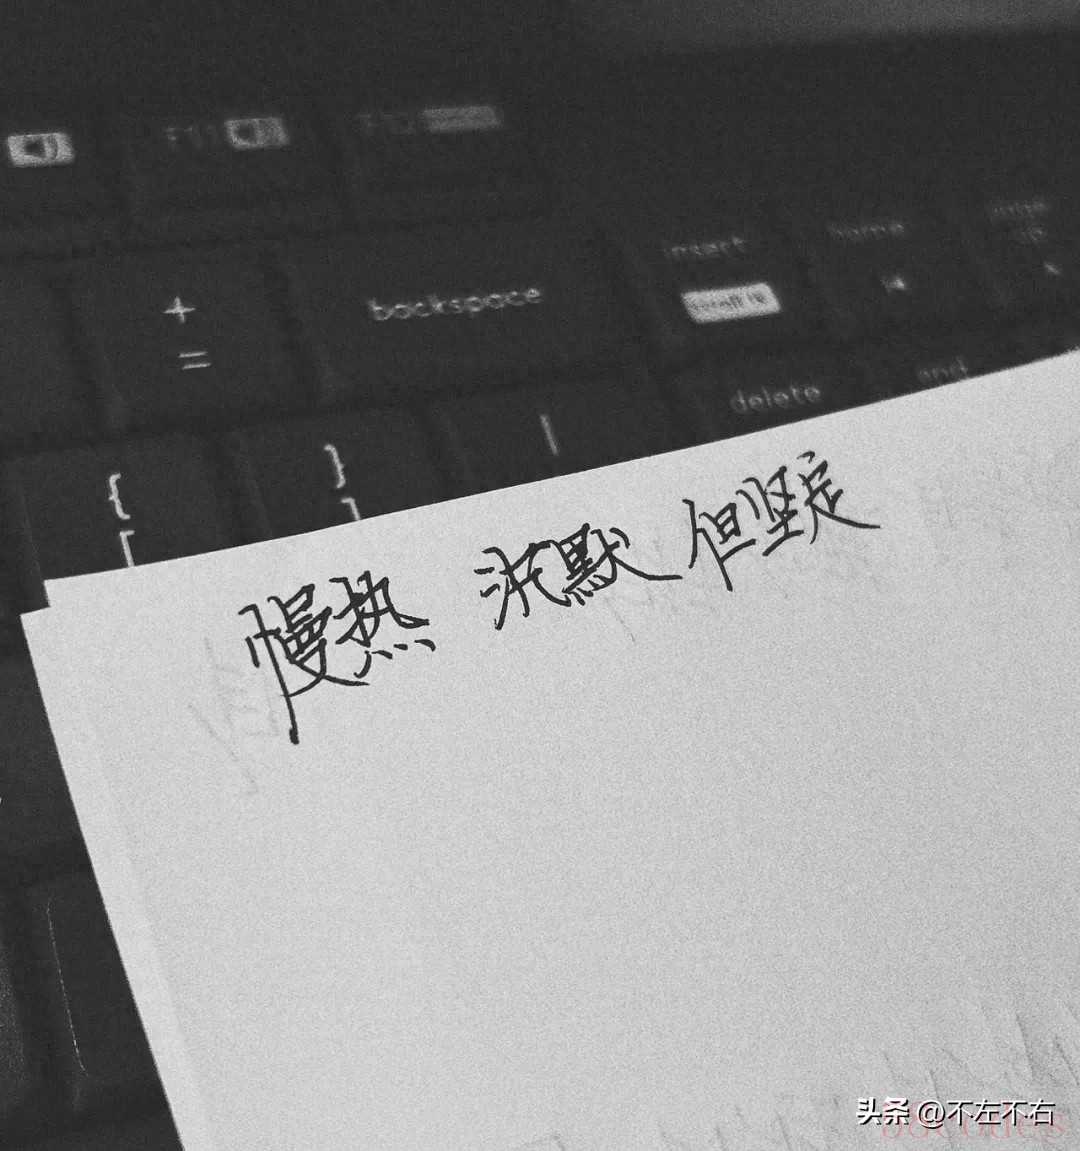 F11
F12
+
=
backspace
insert
home
delete
end
{
[
}
]
|
慢热 沉默 但坚定
头条 @不左不右